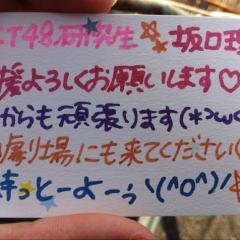 KT48研究生 坂口理
援よろしくお願いします♡
からも頑張ります(*>ω<
握り場にも来てください(
待っとーよーぅ\(^o^)/